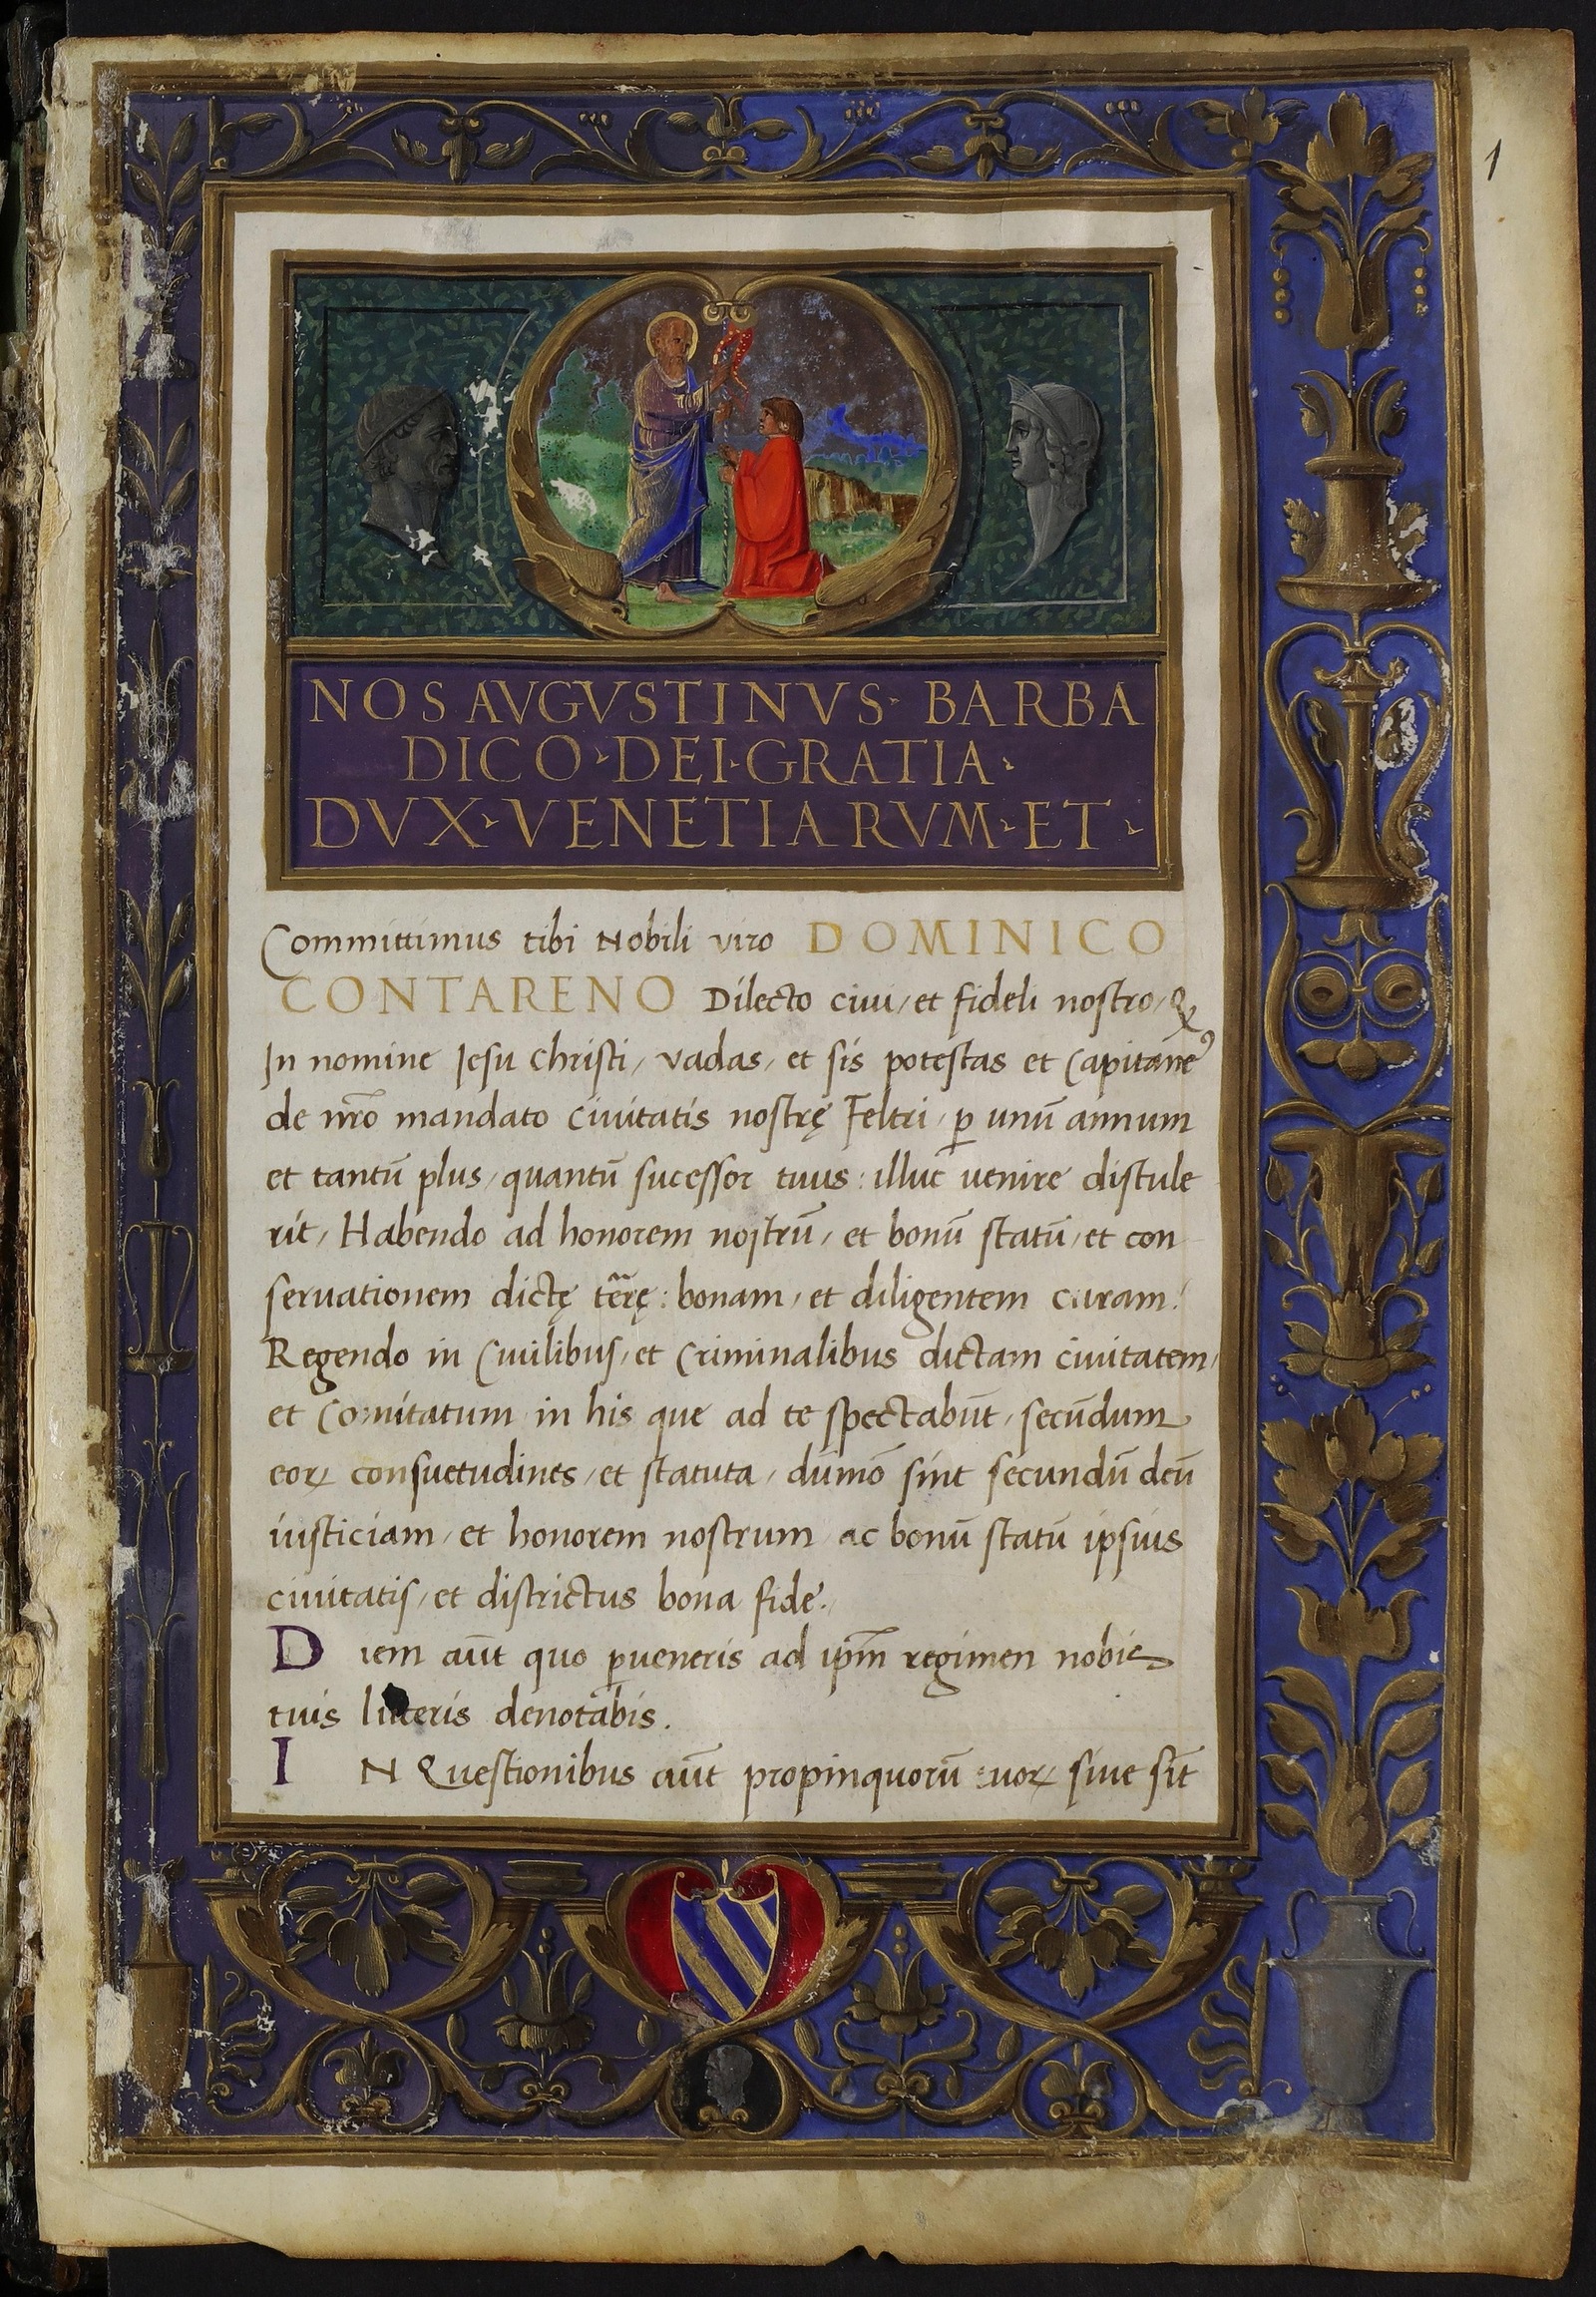 1
NOS AVGVSTINVS · BARBA
DICO · DEI · GRATIA ·
DVX · VENETIARVM · ET ·
Committimus tibi Nobili viro DOMINICO
CONTARENO Dilecto ciui / et fideli nostro / Qꝫ
In nomine Iesu Christi / vadas / et sis potestas et Capitaneꝰ
de nr̃o mandato Ciuitatis nostrę Feltri / ꝑ unū annum
et tantū plus / quantū sucessor tuus : illuc venire distule
rit / Habendo ad honorem nostrū / et bonū statū / et con
seruationem dictę terrę : bonam / et diligentem curam :
Regendo in Ciuilibus / et Criminalibus dictam ciuitatem /
et Comitatum in his que ad te spectabūt / secūdum
eoꝝ consuetudines / et statuta / dūmō sint secundū deū
iusticiam / et honorem nostrum ac bonū statū ipsius
ciuitatis / et districtus bona fide .
Diem aūt quo ꝑueneris ad ip̄m regimen nobis
tuis litteris denotabis .
IN Questionibus aūt propinquorū tuoꝝ siue sīt